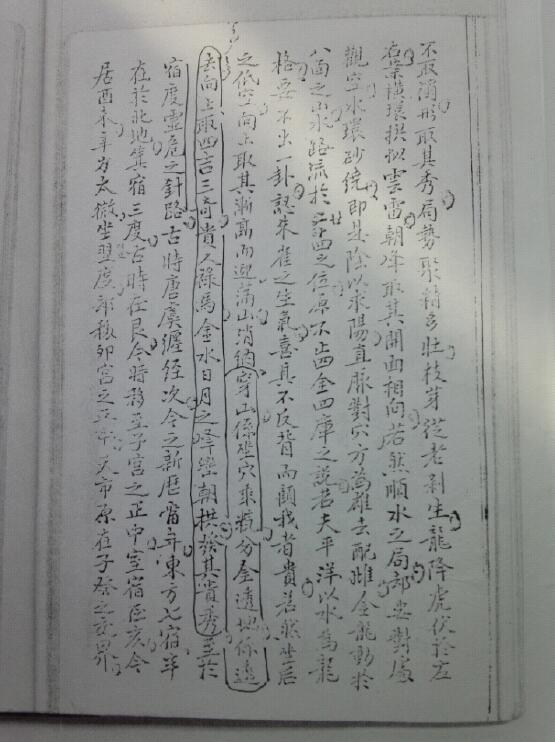 不取消形取其秀局勢聚精多壯枝芽從老剝生龍降虎伏於左
右案橫環拱拟雲雷朝峰取其開面相向若然順水之局却要對處
觀空水環砂繞即是陰以求陽直脉對穴方為雄去配雌金龍動於
八面之山水路流於廿四之位卓不止四金四庫之説若夫平洋以水為龍
格要不出一卦認朱雀之生氣喜其不反背而顧我者貴若然坐后
之低空向上取其漸高而迎蒲山消納穿山係坐穴乘精分金透地係遠
去向上取四吉三奇貴人祿馬金水日月之峰巒朝拱發其貴秀至於
宿度靈危之針路古時唐虞纏経次今之新歷甯弃東方七宿牢
在於北地箕宿三度古時在艮今時移丑子宮之正中室宿居亥今
居酉未辛为太微坐翌度却移卯宮之 天市原在子癸之交界